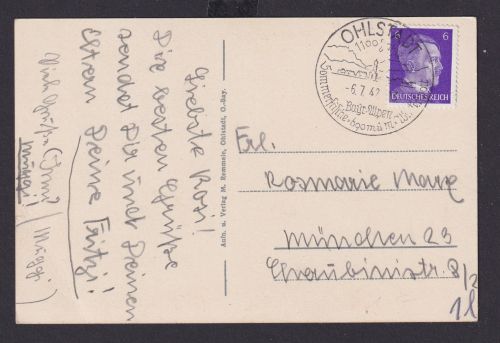 Liebste Rosi!
Die besten Grüße
sendet Dir und Deinen
Eltern Deine Fritzi!
Viele Grüße
Anfn. u. Verlag M. Remmele, Ohlstadt, O.-Bay.
OHLSTADT
1100
-6.7.42
Bayr. Alpen
Sommerfrische
6
DEUTSCHES REICH
Frl.
Rosmarie Marx
München 23
Chraubinistr. 8/2
1l